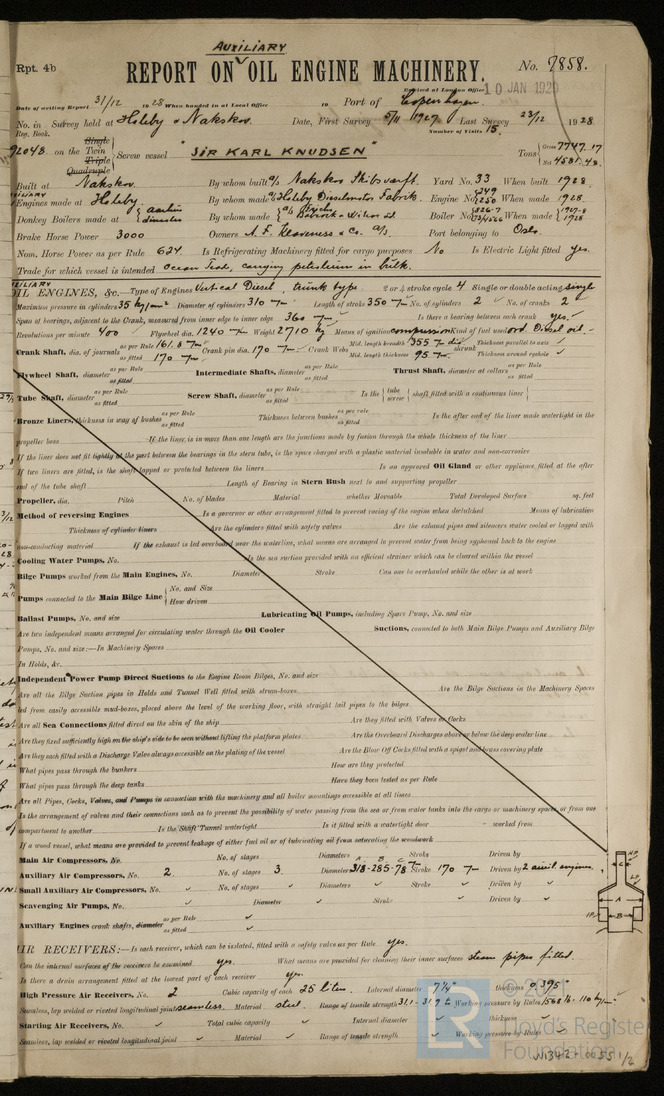 AUXILIARY
Rpt. 4b
REPORT ON OIL ENGINE MACHINERY.
No. 7858.
Received at London Office 10 JAN 192
Date of writing Report 31/12 1928 When handed in at Local Office 19 Port of Copenhagen.
No. in Survey held at Holeby & Nakskov. Date, First Survey 5/11 1927 Last Survey 23/12 1928
Reg. Book. Number of Visits 15.
on the Single Twin Triple Quadruple Screw vessel "SIR KARL KNUDSEN" Tons Gross 7747.17 Net 4581.48
Built at Nakskov. By whom built Nakskov Skibsværft. Yard No. 33 When built 1928.
Engines made at Holeby By whom made Holeby Dieselmotor Fabrik. Engine No. 7249 7250 When made 1928.
Donkey Boilers made at By whom made Boiler No. When made 1928
Brake Horse Power 3000 Owners A/S Port belonging to Oslo.
Nom. Horse Power as per Rule 624. Is Refrigerating Machinery fitted for cargo purposes No Is Electric Light fitted yes.
Trade for which vessel is intended Ocean Trade, carrying petroleum in bulk.
OIL ENGINES, &c. Type of Engines Vertical Diesel, trunk type 2 or 4 stroke cycle 4 Single or double acting single
Maximum pressure in cylinders 35 kg/cm² Diameter of cylinders 310 m/m Length of stroke 350 m/m No. of cylinders 2 No. of cranks 2
Span of bearings, adjacent to the Crank, measured from inner edge to inner edge 360 m/m Is there a bearing between each crank yes.
Revolutions per minute 400 Flywheel dia. 1240 m/m Weight 2710 kg Means of ignition compression Kind of fuel used ord. Diesel oil.
Crank Shaft, dia. of journals as per Rule 161.5 m/m as fitted 170 m/m Crank pin dia. 170 m/m Crank Webs Mid. length breadth 355 m/m dia. Mid. length thickness 95 m/m shrunk Thickness parallel to axis Thickness around eyehole
Flywheel Shaft, diameter as per Rule as fitted Intermediate Shafts, diameter as per Rule as fitted Thrust Shaft, diameter at collars as per Rule as fitted
Tube Shaft, diameter as per Rule as fitted Screw Shaft, diameter as per Rule as fitted Is the tube screw shaft fitted with a continuous liner
Bronze Liners, thickness in way of bushes as per Rule as fitted Thickness between bushes as per rule as fitted Is the after end of the liner made watertight in the
propeller boss If the liner is in more than one length are the junctions made by fusion through the whole thickness of the liner
If the liner does not fit tightly at the part between the bearings in the stern tube, is the space charged with a plastic material insoluble in water and non-corrosive
If two liners are fitted, is the shaft lapped or protected between the liners Is an approved Oil Gland or other appliance fitted at the after
end of the tube shaft Length of Bearing in Stern Bush next to and supporting propeller
Propeller, dia. Pitch No. of blades Material whether Moveable Total Developed Surface sq. feet
Method of reversing Engines Is a governor or other arrangement fitted to prevent racing of the engine when declutched Means of lubrication
Thickness of cylinder liners Are the cylinders fitted with safety valves Are the exhaust pipes and silencers water cooled or lagged with
non-conducting material If the exhaust is led overboard near the waterline, what means are arranged to prevent water from being syphoned back to the engine
Cooling Water Pumps, No. Is the sea suction provided with an efficient strainer which can be cleared within the vessel
Bilge Pumps worked from the Main Engines, No. Diameter Stroke Can one be overhauled while the other is at work
Pumps connected to the Main Bilge Line No. and Size How driven
Ballast Pumps, No. and size Lubricating Oil Pumps, including Spare Pump, No. and size
Are two independent means arranged for circulating water through the Oil Cooler Suctions, connected to both Main Bilge Pumps and Auxiliary Bilge
Pumps, No. and size:—In Machinery Spaces
In Holds, &c.
Independent Power Pump Direct Suctions to the Engine Room Bilges, No. and size
Are all the Bilge Suction pipes in Holds and Tunnel Well fitted with strum-boxes Are the Bilge Suctions in the Machinery Spaces
led from easily accessible mud-boxes, placed above the level of the working floor, with straight tail pipes to the bilges
Are all Sea Connections fitted direct on the skin of the ship Are they fitted with Valves or Cocks
Are they fixed sufficiently high on the ship's side to be seen without lifting the platform plates Are the Overboard Discharges above or below the deep water line
Are they each fitted with a Discharge Valve always accessible on the plating of the vessel Are the Blow Off Cocks fitted with a spigot and brass covering plate
What pipes pass through the bunkers How are they protected
What pipes pass through the deep tanks Have they been tested as per Rule
Are all Pipes, Cocks, Valves, and Pumps in connection with the machinery and all boiler mountings accessible at all times
Is the arrangement of valves and their connections such as to prevent the possibility of water passing from the sea or from water tanks into the cargo or machinery spaces, or from one
compartment to another Is the Shaft Tunnel watertight Is it fitted with a watertight door worked from
If a wood vessel, what means are provided to prevent leakage of either fuel oil or lubricating oil from saturating the woodwork
Main Air Compressors, No. No. of stages Diameters Stroke Driven by
Auxiliary Air Compressors, No. 2. No. of stages 3. Diameters A B C 318-285-78 m/m Stroke 170 m/m Driven by 2 auxil. engines.
Small Auxiliary Air Compressors, No. No. of stages Diameters Stroke Driven by
Scavenging Air Pumps, No. Diameter Stroke Driven by
Auxiliary Engines crank shafts, diameter as per Rule as fitted
AIR RECEIVERS:—Is each receiver, which can be isolated, fitted with a safety valve as per Rule yes.
Can the internal surfaces of the receivers be examined yes. What means are provided for cleaning their inner surfaces steam pipes fitted.
Is there a drain arrangement fitted at the lowest part of each receiver yes.
High Pressure Air Receivers, No. 2 Cubic capacity of each 25 liters. Internal diameter 7¼" thickness 0.395
Seamless, lap welded or riveted longitudinal joint seamless. Material steel. Range of tensile strength 31.1-31.9 t. Working pressure by Rules 1568 lb.
Starting Air Receivers, No. Total cubic capacity Internal diameter thickness
Seamless, lap welded or riveted longitudinal joint Material Range of tensile strength Working pressure by Rules
© 2021
Lloyd's Register
Foundation
W1342-0055 1/2